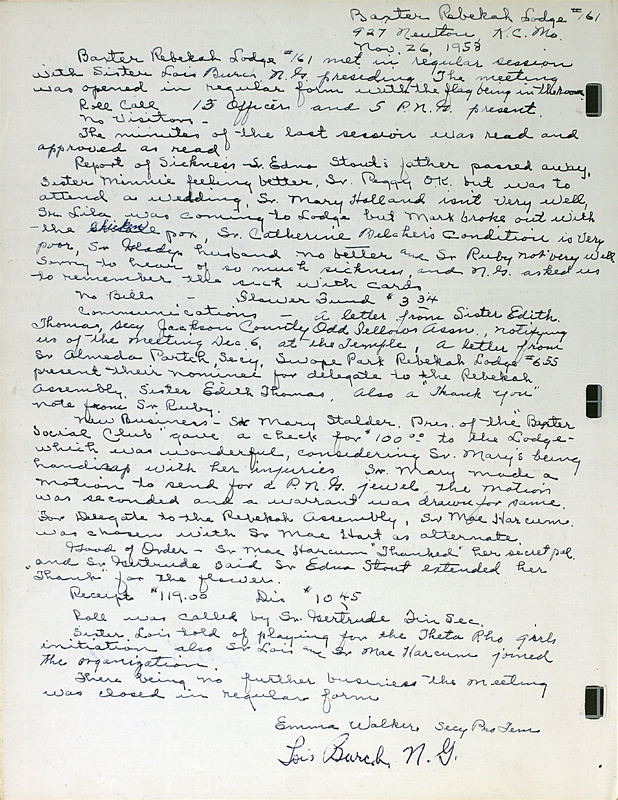 Baxter Rebekah Lodge #161
927 Newton, K.C. Mo.
Nov. 26, 1958
Baxter Rebekah Lodge #161 met in regular session
with Sister Lois Burch N.G. presiding. The meeting
was opened in regular form with the flag being in the room
Roll Call 13 Officers and 5 P.N.G. present.
No Visitors -
The minutes of the last session was read and
approved as read
Report of Sickness - Sr. Edna Stout's father passed away,
Sister Minnie feeling better, Sr. Peggy OK. but was to
attend a wedding, Sr. Mary Holland isn't very well,
Sr. Lila was coming to Lodge but Mark broke out with
the pox Sr. Catherine Belcher's Condition is very
poor, Sr. Gladys husband no better and Sr Ruby not very well
Sorry to hear of so much sickness, and N.G. asked us
to remember the sick with cards.
No Bills - Flower Fund $3.34
Communications - A letter from Sister Edith
Thomas, Secy Jackson County Odd Fellows Assn., notifying
us of the meeting Dec. 6, at the Temple, A letter from
Sr Almeda Secy, Swope Park Rebekah Lodge #655
present their nominee for delegate to the Rebekah
Assembly, Sister Edith Thomas. Also a "Thank you"
note from Sr. Ruby.
New Business - Sr Mary Stalder. Pres. of the "Baxter
Social Club" gave a check for $100.00 to the Lodge -
which was wonderful, considering Sr. Mary's being
handicap with her injuries Sr. Mary made a
motion to send for a P.N.G. jewel, the motion
was seconded and a warrant was drawn for same.
For Delegate to the Rebekah Assembly, Sr Mae Harcum
was chosen with Sr Mae Hart as alternate.
Good of Order - Sr Mae Harcum "Thanked" her secret pal.
and Sr. Gertrude said Sr Edna Stout extended her
"Thanks" for the flowers.
Receipt $119.00 Dis $10.45
Roll was called by Sr. Gertrude Fin Sec.
Sister Lois told of playing for the Theta Rho girls
initiation also Sr Lois and Sr Mae Harcum joined
the organization.
There being no further business the meeting
was closed in regular form
Emma Walker Secy Pro Tem
Lois Burch, N.G.